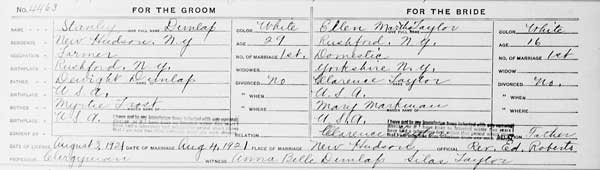 No. 4463 FOR THE GROOM FOR THE BRIDE
NAME Stanley Dunlap COLOR White Ellen Martha Taylor COLOR White
RESIDENCE New Hudson, N.Y. AGE 27 Rushford, N.Y. AGE 16
OCCUPATION Farmer NO. OF MARRIAGE 1st. Domestic NO. OF MARRIAGE 1st
BIRTHPLACE Rushford, N.Y. WIDOWER Yorkshire N.Y. WIDOW
FATHER Dwight Dunlap DIVORCED No Clarence Taylor DIVORCED No.
BIRTHPLACE U.S.A. " WHEN U.S.A. " WHEN
MOTHER Myrtie Trost " WHERE Mary Markman " WHERE
BIRTHPLACE U.S.A. U.S.A.
CONSENT BY Clarence RELATION Father
DATE OF LICENSE August 3, 1921 DATE OF MARRIAGE Aug 4, 1921 PLACE OF MARRIAGE New Hudson OFFICIAL Rev. Ed. Roberts
PROFESSION Clergyman WITNESS Anna Belle Dunlap Silas Taylor